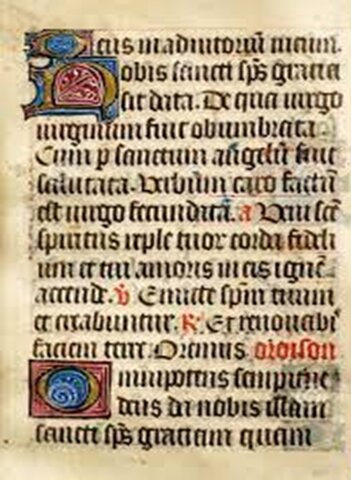 Deus in adiutoriũ meum.
Nobis sancti sp̃s gracia
sit data. De qua uirgo
uirginum fuit obumbrata
Cum p sanctum angelũ fuit
salutata. Verbum caro factũ
est uirgo fecundata. a Veni scẽ
spiritus reple tuor corda fideli
um et tui amoris in eis ignẽ
accende. v̉ Emicte sp̃m tuum
et creabuntur. R Et renouabi
faciem terre. Oremus oroison
Omnipotens sempiterne
deus da nobis illam
sancti sp̃s graciam quam